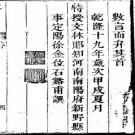 數言而弁其首
乾隆十九年歲次甲戌夏月
特授文林郎知河南南陽府新野縣
事定陽徐金位石蕃甫譔